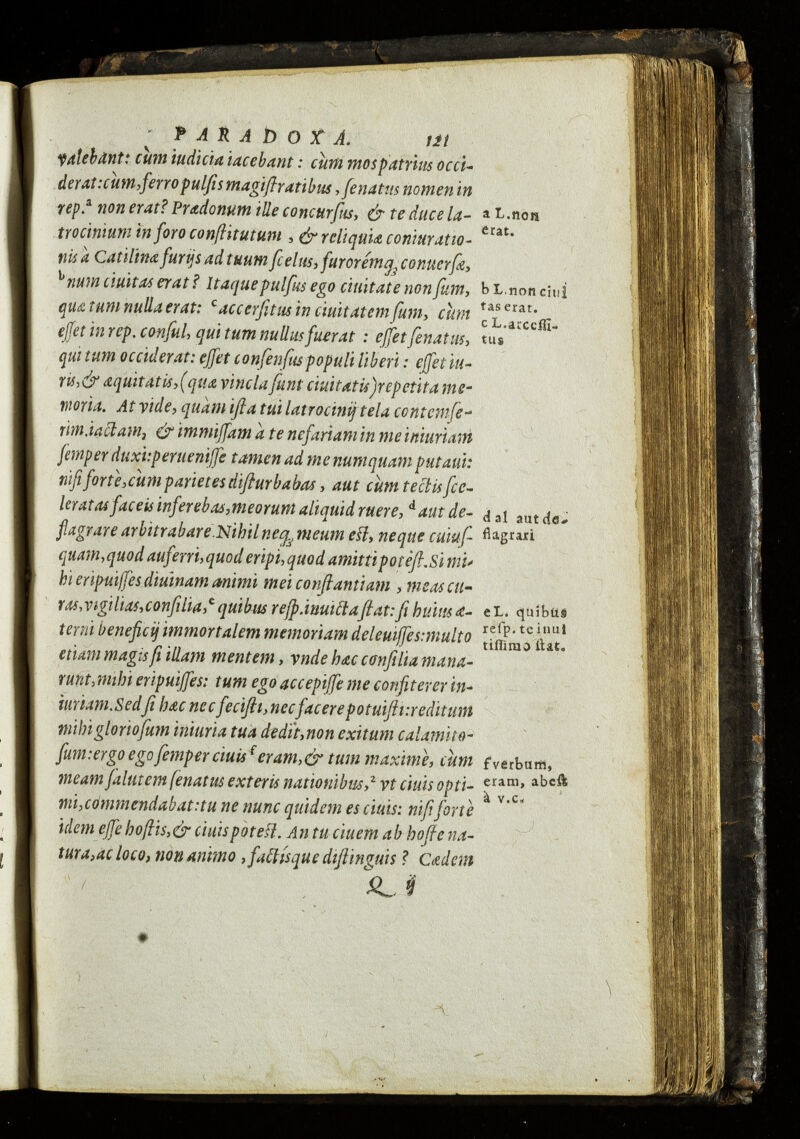 PARADOXA. 121
valebant: cùm iudicia iacebant: cùm mos patrius occi-
derat: cùm, ferro pulsis magistratibus, senatus nomen in
rep.ª non erat? Prædonum ille concursus, & te duce la-
trocinium in foro constitutum, & reliquiæ coniuratio-
nis à Catilinæ furijs ad tuum scelus, furorémq; conuersæ,
ᵇnum ciuitas erat? Itaque pulsus ego ciuitate non sum,
quæ tum nulla erat: ᶜaccersitus in ciuitatem sum, cùm
esset in rep. consul, qui tum nullus fuerat: esset senatus,
qui tum occiderat: esset consensus populi liberi: esset iu-
ris, & æquitatis, (quæ vincla sunt ciuitatis) repetita me-
moria. At vide, quàm ista tui latrocinij tela contemse-
rim. iactam, & immissam à te nefariam in me iniuriam
semper duxi: peruenisse tamen ad me numquam putaui:
nisi fortè, cùm parietes disturbabas, aut cùm tectis sce-
leratas faceis inferebas, meorum aliquid ruere, ᵈaut de-
flagrare arbitrabare. Nihil neq; meum est, neque cuius-
quam, quod auferri, quod eripi, quod amitti potest. Si mi-
hi eripuisses diuinam animi mei constantiam, meas cu-
ras, vigilias, consilia,ᵉ quibus resp. inuicta stat: si huius æ-
terni beneficij immortalem memoriam deleuisses: multo
etiam magis si illam mentem, vnde hæc consilia mana-
runt, mihi eripuisses: tum ego accepisse me confiterer in-
iuriam. Sed si hæc nec fecisti, nec facere potuisti: reditum
mihi gloriosum iniuria tua dedit, non exitum calamito-
sum: ergo ego semper ciuisᶠ eram, & tum maximè, cùm
meam salutem senatus exteris nationibus,² vt ciuis opti-
mi, commendabat: tu ne nunc quidem es ciuis: nisi fortè
idem esse hostis, & ciuis potest. An tu ciuem ab hoste na-
tura, ac loco, non animo, factísque distinguis? Cædem
Q ij
a L. non
erat.
b L. non ciui
tas erat.
c L. arcessi-
tus
d al aut de-
flagrari
e L. quibus
resp. te inui
tissimo stat.
f verbum,
eram, abest
à v.c.